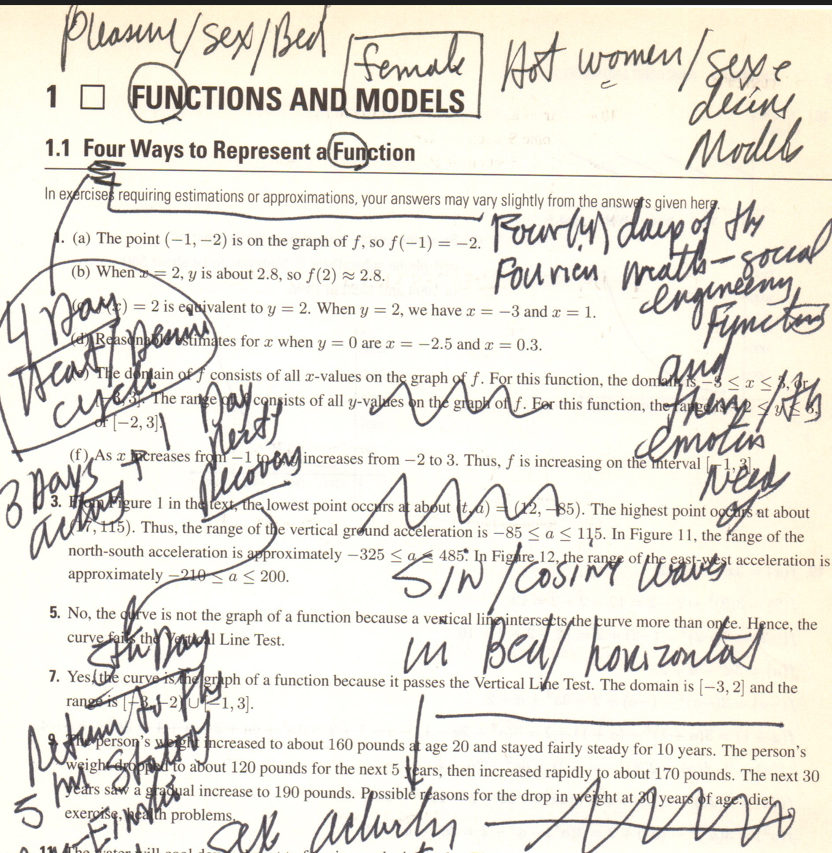 Pleasure/sex/Bed
female
Hot women/sex
desire
Models
1 □ FUNCTIONS AND MODELS
1.1 Four Ways to Represent a Function
In exercises requiring estimations or approximations, your answers may vary slightly from the answers given here.
1. (a) The point (−1, −2) is on the graph of f, so f(−1) = −2.
Four (4) days of the
(b) When x = 2, y is about 2.8, so f(2) ≈ 2.8.
Fourier math-social
engineering
(c) f(x) = 2 is equivalent to y = 2. When y = 2, we have x = −3 and x = 1.
Function
4 Day
(d) Reasonable estimates for x when y = 0 are x = −2.5 and x = 0.3.
Heat/
cycle
and
(e) The domain of f consists of all x-values on the graph of f. For this function, the domain is −3 ≤ x ≤ 3, or
[−3, 3]. The range of f consists of all y-values on the graph of f. For this function, the range is −2 ≤ y ≤ 3,
or [−2, 3].
emotion
Needs
(f) As x increases from −1 to 3, y increases from −2 to 3. Thus, f is increasing on the interval [−1, 3].
3 Days + 1 Day
Rest/
Recovery
3. From Figure 1 in the text, the lowest point occurs at about (t, a) = (12, −85). The highest point occurs at about
(17, 115). Thus, the range of the vertical ground acceleration is −85 ≤ a ≤ 115. In Figure 11, the range of the
north-south acceleration is approximately −325 ≤ a ≤ 485. In Figure 12, the range of the east-west acceleration is
approximately −210 ≤ a ≤ 200.
SIN/COSINE waves
5. No, the curve is not the graph of a function because a vertical line intersects the curve more than once. Hence, the
curve fails the Vertical Line Test.
in Bed/horizontal
5th Day
7. Yes, the curve is the graph of a function because it passes the Vertical Line Test. The domain is [−3, 2] and the
range is [−3, −2) ∪ [−1, 3].
Return to the
9. The person's weight increased to about 160 pounds at age 20 and stayed fairly steady for 10 years. The person's
weight dropped to about 120 pounds for the next 5 years, then increased rapidly to about 170 pounds. The next 30
years saw a gradual increase to 190 pounds. Possible reasons for the drop in weight at 30 years of age: diet,
exercise, health problems.
5 hr Study
sex activity